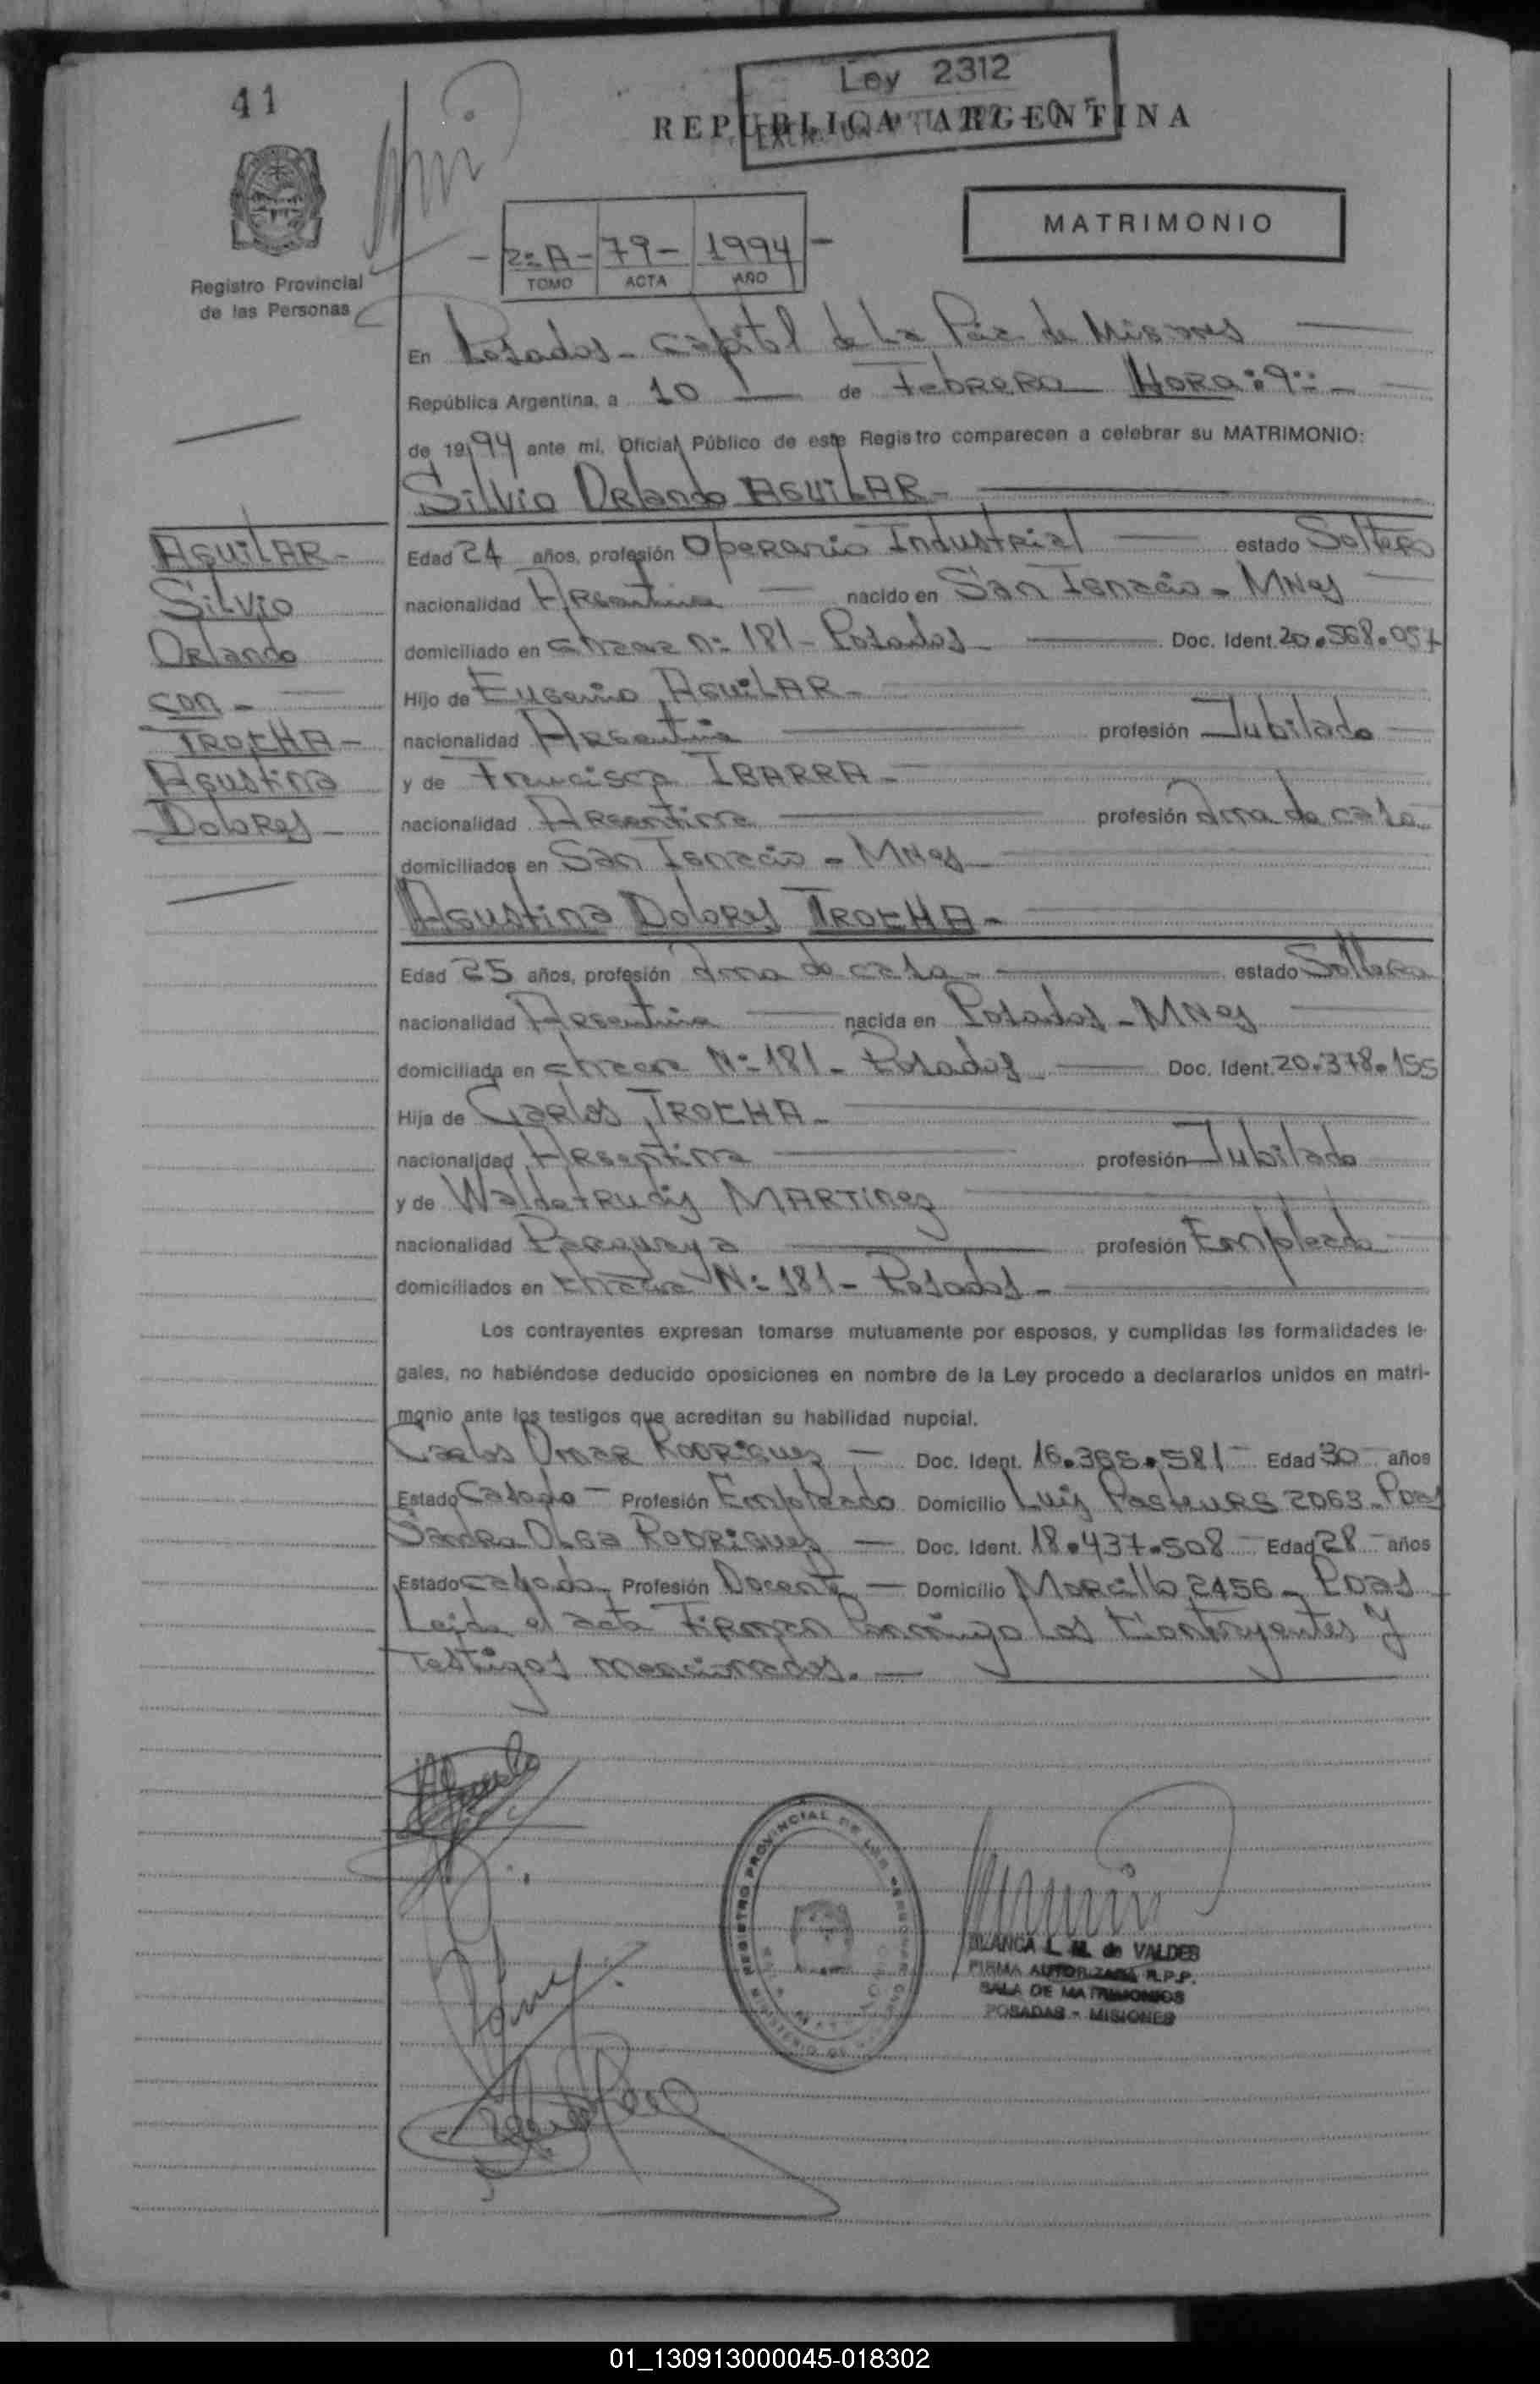 41
Ley 2312
REPUBLICA ARGENTINA
MATRIMONIO
Registro Provincial
de las Personas
- 2=A - 79 - 1994 -
TOMO ACTA AÑO
En Posadas - Capital de La Pcia. de Misiones
República Argentina, a 10 de Febrero HORA: 9:: -
de 1994 ante mí, Oficial Público de este Registro comparecen a celebrar su MATRIMONIO:
Silvio Orlando AGUILAR -
AGUILAR -
Silvio
Orlando
con -
TROCHA -
Agustina
Dolores -
Edad 24 años, profesión Operario Industrial estado Soltero
nacionalidad Argentina nacido en San Ignacio - MNes
domiciliado en chacra N: 181 - Posadas Doc. Ident. 20.568.057
Hijo de Eugenio AGUILAR -
nacionalidad Argentina profesión Jubilado
y de Francisca IBARRA -
nacionalidad Argentina profesión Ama de casa
domiciliados en San Ignacio - MNes
Agustina Dolores TROCHA -
Edad 25 años, profesión Ama de casa - estado Soltera
nacionalidad Argentina nacida en Posadas - MNes
domiciliada en chacra N: 181 - Posadas Doc. Ident. 20.378.155
Hija de Carlos TROCHA -
nacionalidad Argentina profesión Jubilado
y de Waldetrudis MARTINez
nacionalidad Paraguaya profesión Empleada
domiciliados en chacra N: 181 - Posadas -
Los contrayentes expresan tomarse mutuamente por esposos, y cumplidas las formalidades le-
gales, no habiéndose deducido oposiciones en nombre de la Ley procedo a declararlos unidos en matri-
monio ante los testigos que acreditan su habilidad nupcial.
Carlos Omar RODRIGUez - Doc. Ident. 16.365.581 - Edad 30 años
Estado Casado - Profesión Empleado Domicilio Luis Pasteurs 2063 - Pdas
Sandra Olga RODRIGUez - Doc. Ident. 18.437.508 - Edad 28 años
Estado casada - Profesión Docente - Domicilio Morcillo 2456 - Pdas
Leida el acta Firman Conmigo Los Contrayentes y
Testigos mencionados. -
REGISTRO PROVINCIAL DE LAS PERSONAS
BLANCA L. M. de VALDES
FIRMA AUTORIZADA R.P.P.
SALA DE MATRIMONIOS
POSADAS - MISIONES
01_130913000045-018302